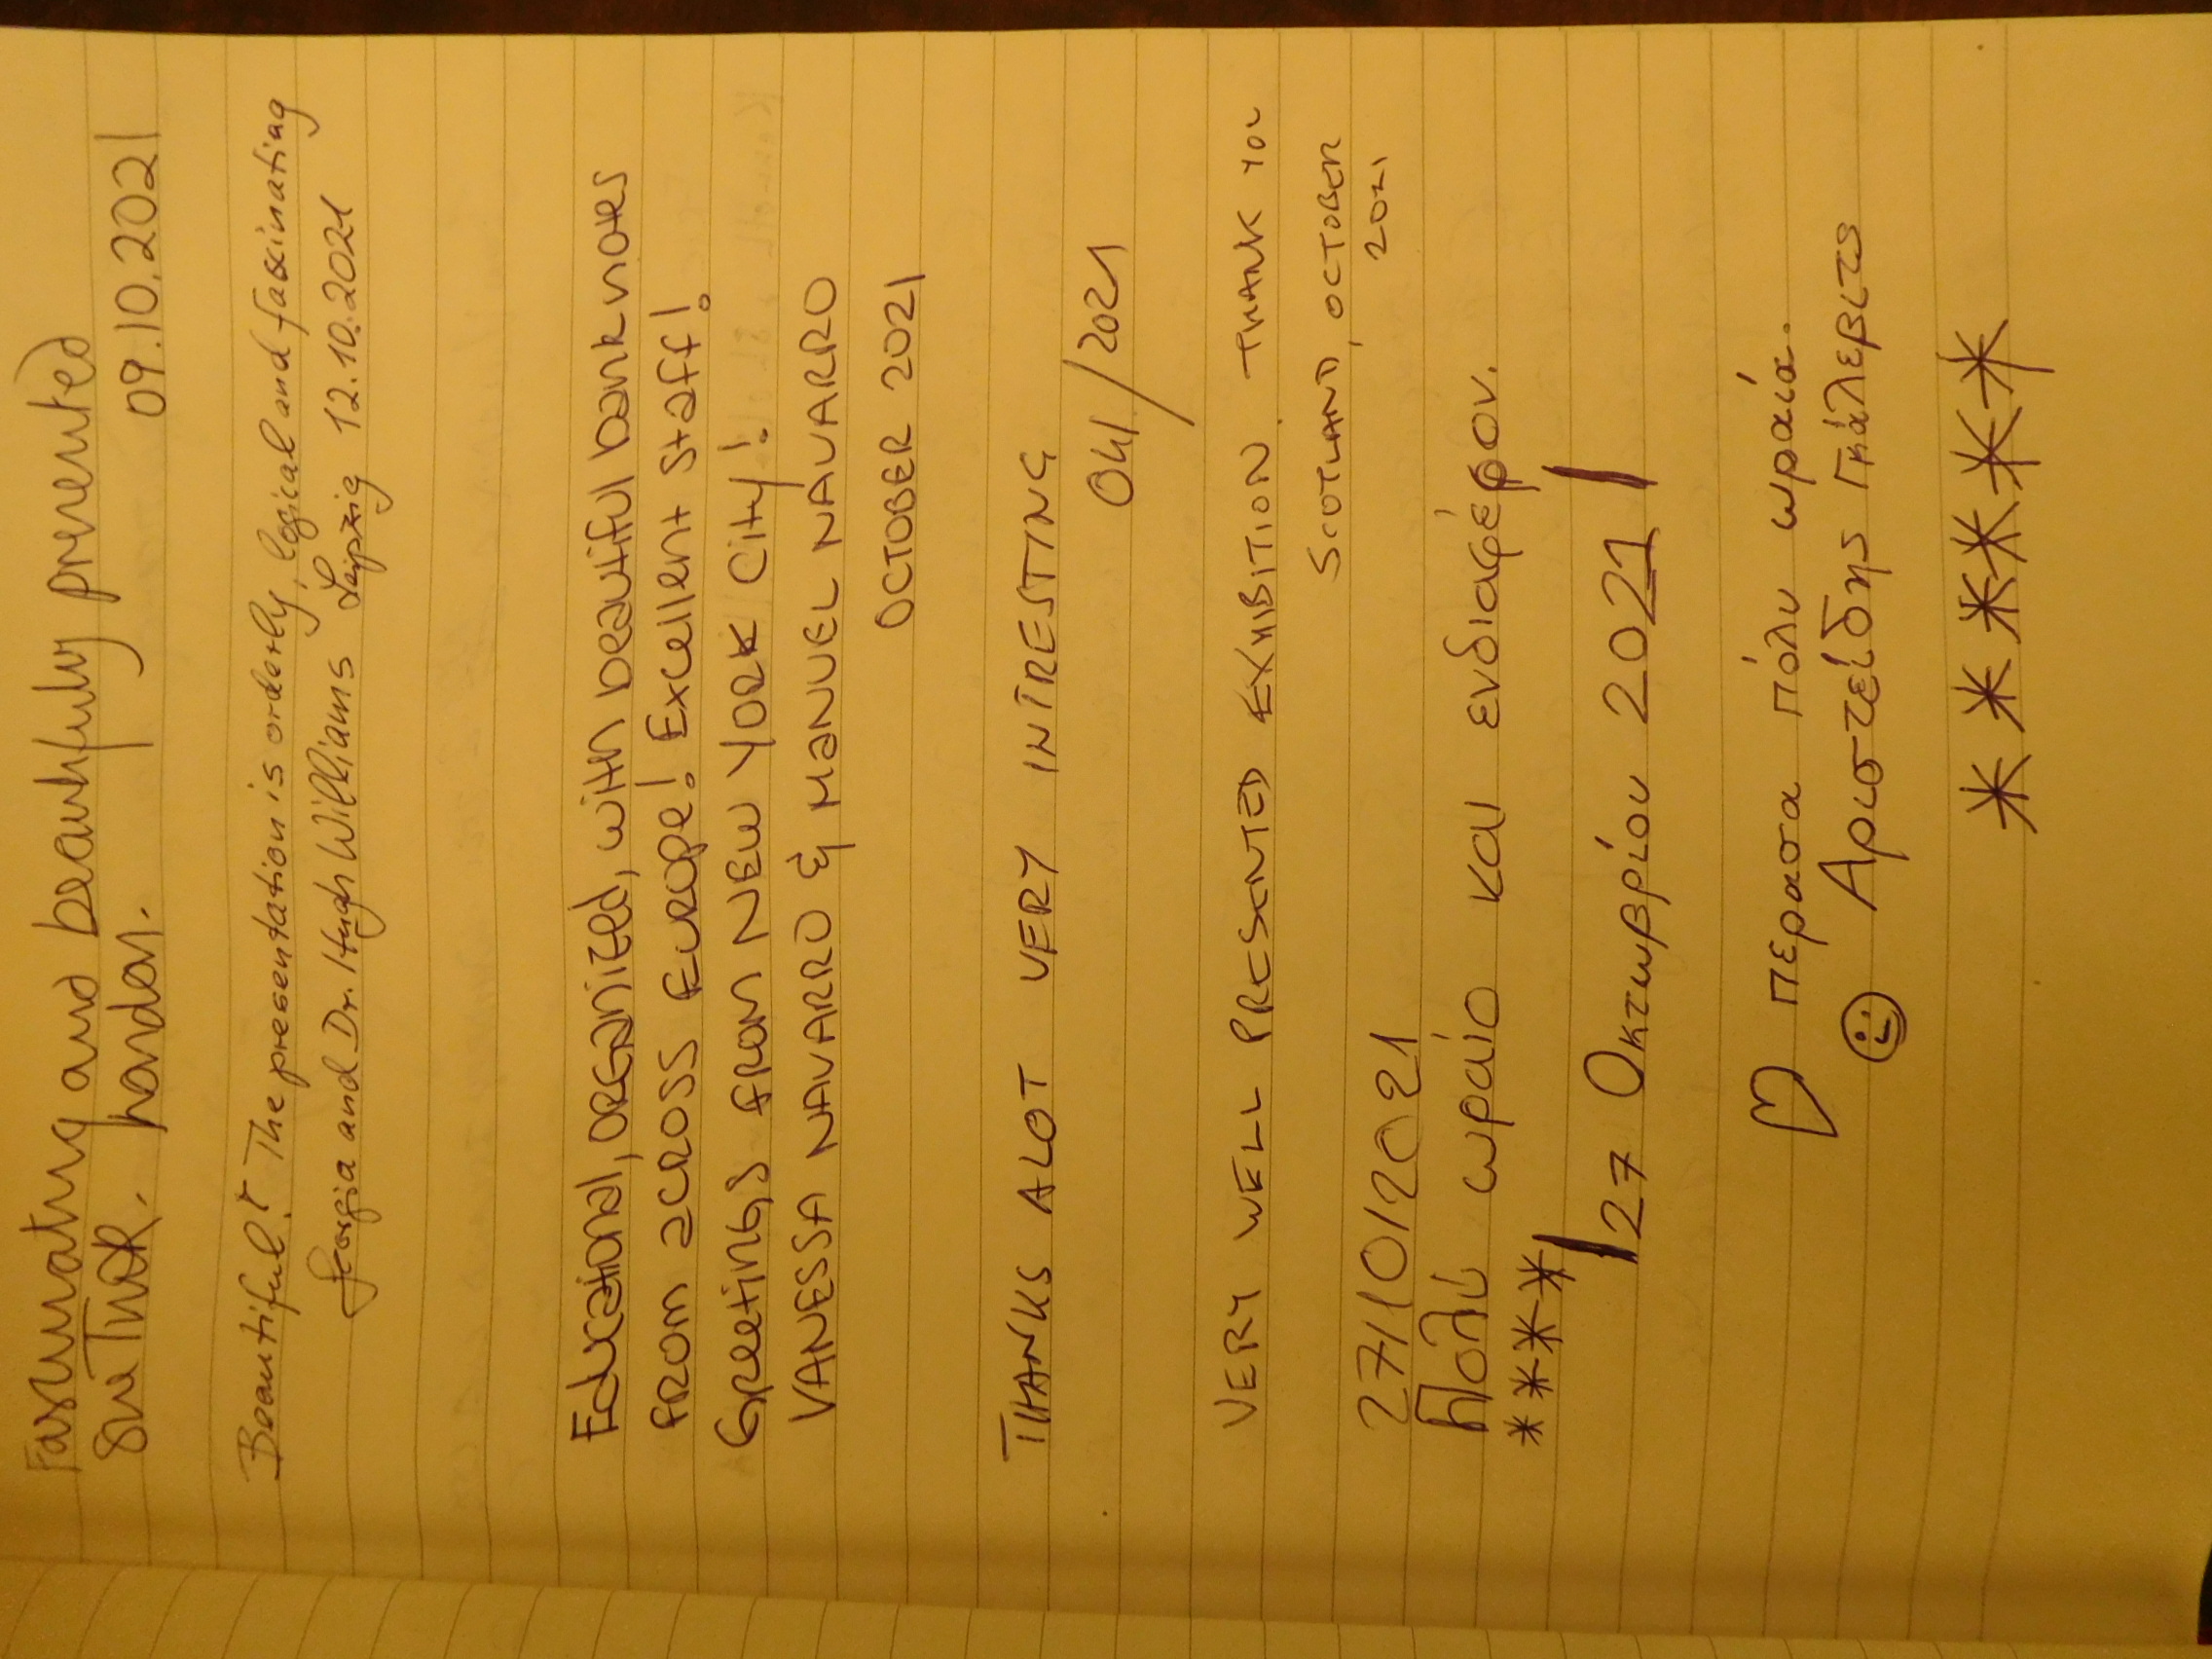 Fascinating and beautifully presented
Sue Tudor. London. 09.10.2021
Beautiful! The presentation is orderly, logical and fascinating
Georgia and Dr. Hugh Williams Leipzig 12.10.2021
Educational, organized, with beautiful bank notes
from across Europe! Excellent staff!
Greetings from New York City!
VANESSA NAVARRO & MANUEL NAVARRO
OCTOBER 2021
THANKS ALOT VERY INTRESTING
041/2021
VERY WELL PRESENTED EXHIBITION. THANK YOU
SCOTLAND, OCTOBER
2021
27/10/2021
Πολύ ωραίο και ενδιαφέρον.
****
27 Οκτωβρίου 2021
περασα πόλυ ωραία.
Αριστείδης
******